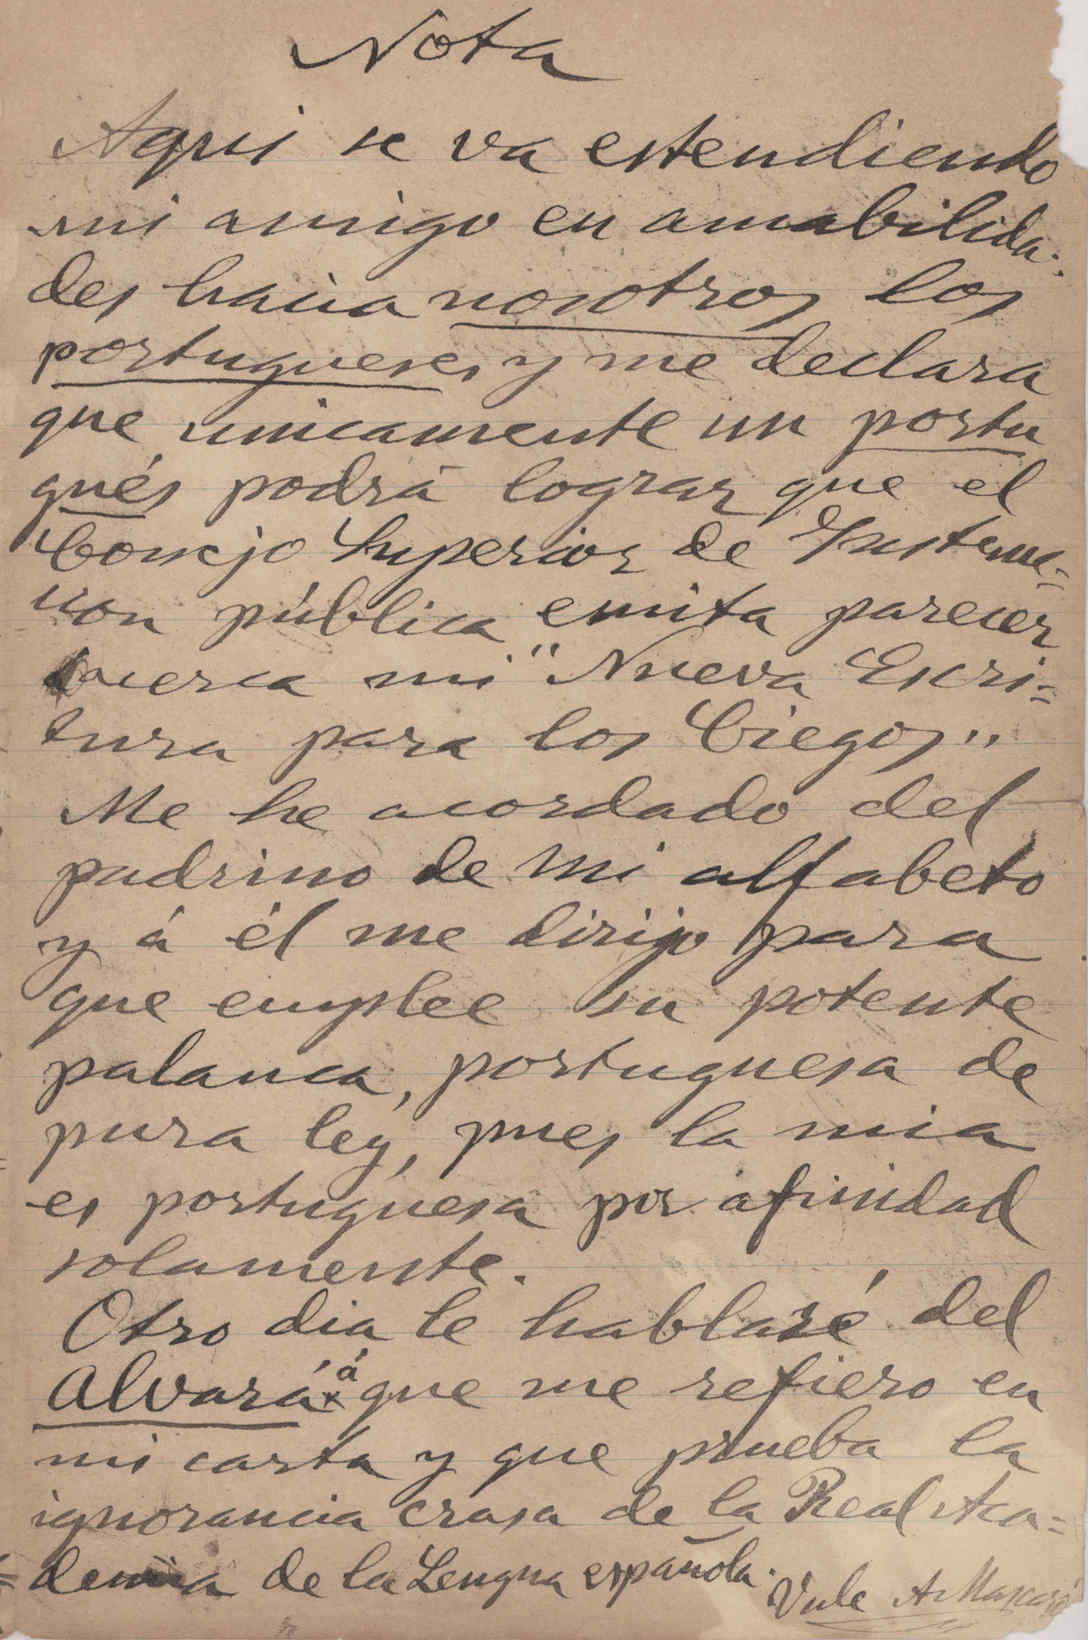 Nota
Aqui se va estendiendo
mi amigo en amabilida-
des hacia nosotros los
portugueses, y me declara
que unicamente un portu
gués podrá lograr que el
Consejo Superior de Instruc-
cion pública emita parecer
acerca mi "Nueva Escri=
tura para los Ciegos"
Me he acordado del
padrino de mi alfabeto
y á él me dirijo para
que emplee su potente
palanca, portuguesa de
pura ley, pues la mia
es portuguesa por afinidad
solamente.
Otro dia le hablaré del
Alvará á que me refiero en
mi carta y que prueba la
ignorancia crasa de la Real Aca=
demia de la Lengua española.
Vale A. Mascaró